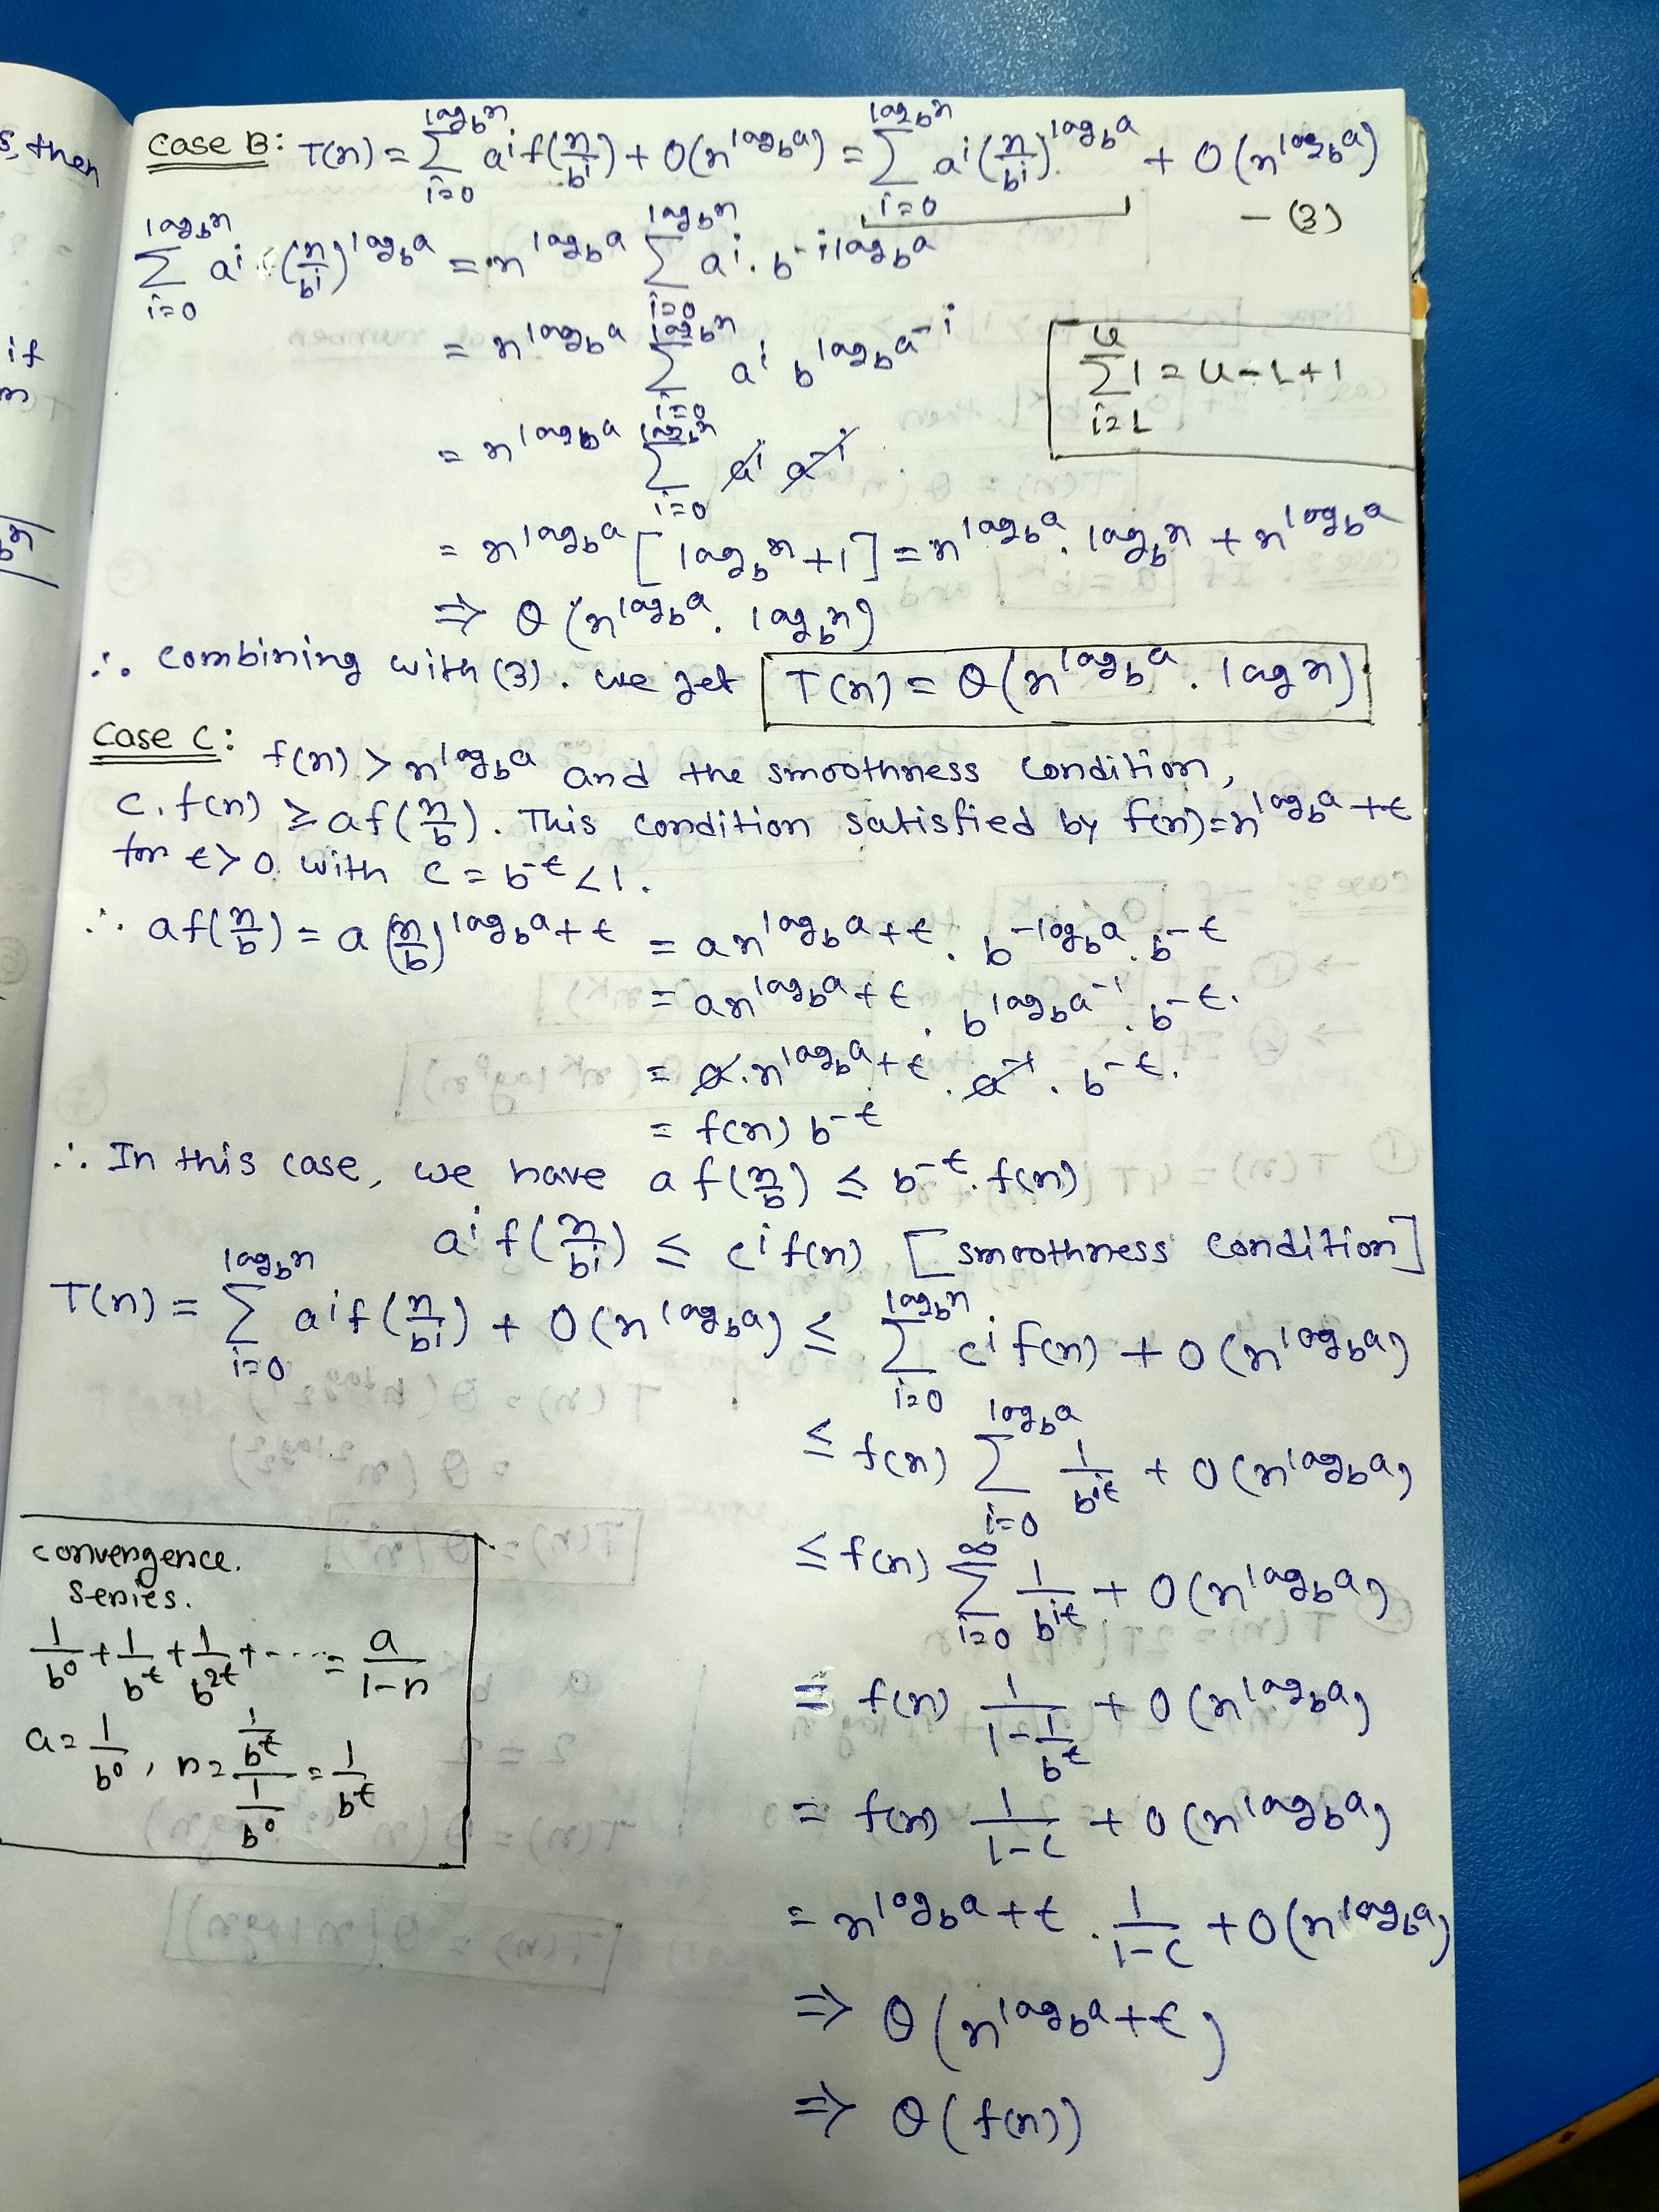 s, then
if
m
bⁿ
Case B: T(n) = Σ_{i=0}^{log_b n} a^i f(n/b^i) + O(n^{log_b a}) = Σ_{i=0}^{log_b n} a^i (n/b^i)^{log_b a} + O(n^{log_b a})
— (3)
Σ_{i=0}^{log_b n} a^i · (n/b^i)^{log_b a} = n^{log_b a} Σ_{i=0}^{log_b n} a^i · b^{-i log_b a}
= n^{log_b a} Σ_{i=0}^{log_b n} a^i b^{log_b a^{-i}}
Σ_{i=L}^{U} 1 = U - L + 1
= n^{log_b a} Σ_{i=0}^{log_b n} a^i a^{-i}
= n^{log_b a} [log_b n + 1] = n^{log_b a} · log_b n + n^{log_b a}
⇒ θ(n^{log_b a} · log_b n)
∴ combining with (3). we get T(n) = θ(n^{log_b a} · log n)
Case C: f(n) > n^{log_b a} and the smoothness condition,
c. f(n) ≥ a f(n/b). This condition satisfied by f(n) = n^{log_b a + ε}
for ε > 0 with c = b^{-ε} < 1.
∴ a f(n/b) = a (n/b)^{log_b a + ε} = a n^{log_b a + ε} . b^{-log_b a} . b^{-ε}
= a n^{log_b a + ε} . b^{log_b a^{-1}} . b^{-ε}.
= a . n^{log_b a + ε} . a^{-1} . b^{-ε}.
= f(n) b^{-ε}
∴ In this case, we have a f(n/b) ≤ b^{-ε} . f(n)
a^i f(n/b^i) ≤ c^i f(n) [smoothness condition]
T(n) = Σ_{i=0}^{log_b n} a^i f(n/b^i) + O(n^{log_b a}) ≤ Σ_{i=0}^{log_b n} c^i f(n) + O(n^{log_b a})
≤ f(n) Σ_{i=0}^{log_b a} 1/b^{iε} + O(n^{log_b a})
≤ f(n) Σ_{i=0}^{∞} 1/b^{iε} + O(n^{log_b a})
= f(n) 1/(1 - 1/b^ε) + O(n^{log_b a})
= f(n) 1/(1-c) + O(n^{log_b a})
= n^{log_b a + ε} . 1/(1-c) + O(n^{log_b a})
⇒ θ(n^{log_b a + ε})
⇒ θ(f(n))
convergence.
series.
1/b^0 + 1/b^ε + 1/b^{2ε} + ---- = a/(1-r)
a = 1/b^0, r = (1/b^ε)/(1/b^0) = 1/b^ε